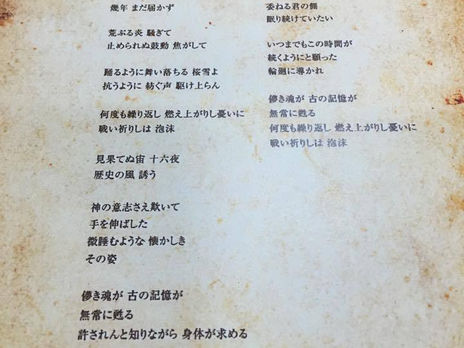 幾年 まだ届かず
荒ぶる炎 騒ぎて
止められぬ鼓動 焦がして
踊るように舞い落ちる 桜雪よ
抗うように 紡ぐ声 駆け上らん
何度も繰り返し 燃え上がりし憂いに
戦い祈りしは 泡沫
見果てぬ宙 十六夜
歴史の風 誘う
神の意志さえ欺いて
手を伸ばした
微睡むような 懐かしき
その姿
儚き魂が 古の記憶が
無常に甦る
許されんと知りながら 身体が求める
委ねる君の側
眠り続けていたい
いつまでもこの時間が
続くようにと願った
輪廻に導かれ
儚き魂が 古の記憶が
無常に甦る
何度も繰り返し 燃え上がりし憂いに
戦い祈りしは 泡沫